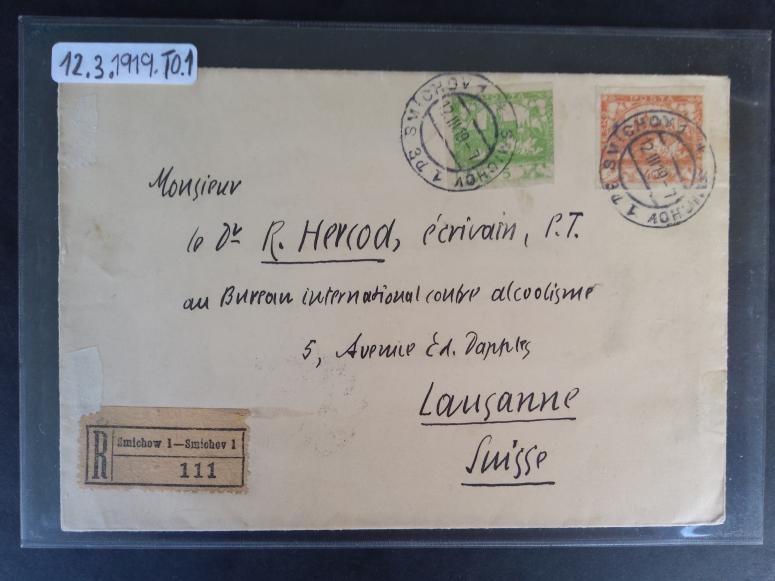 12.3.1919. TO.1
SMICHOV 1
12.III.19-7
SMÍCHOV 1
POSTA
SMICHOV 1
12.III.19-7
SMÍCHOV 1
Monsieur
le Dr R. Hercod, écrivain, P.T.
au Bureau international contre alcoolisme
5, Avenue Éd. Dapples
Lausanne
Suisse
R Smichow 1—Smíchov 1
111